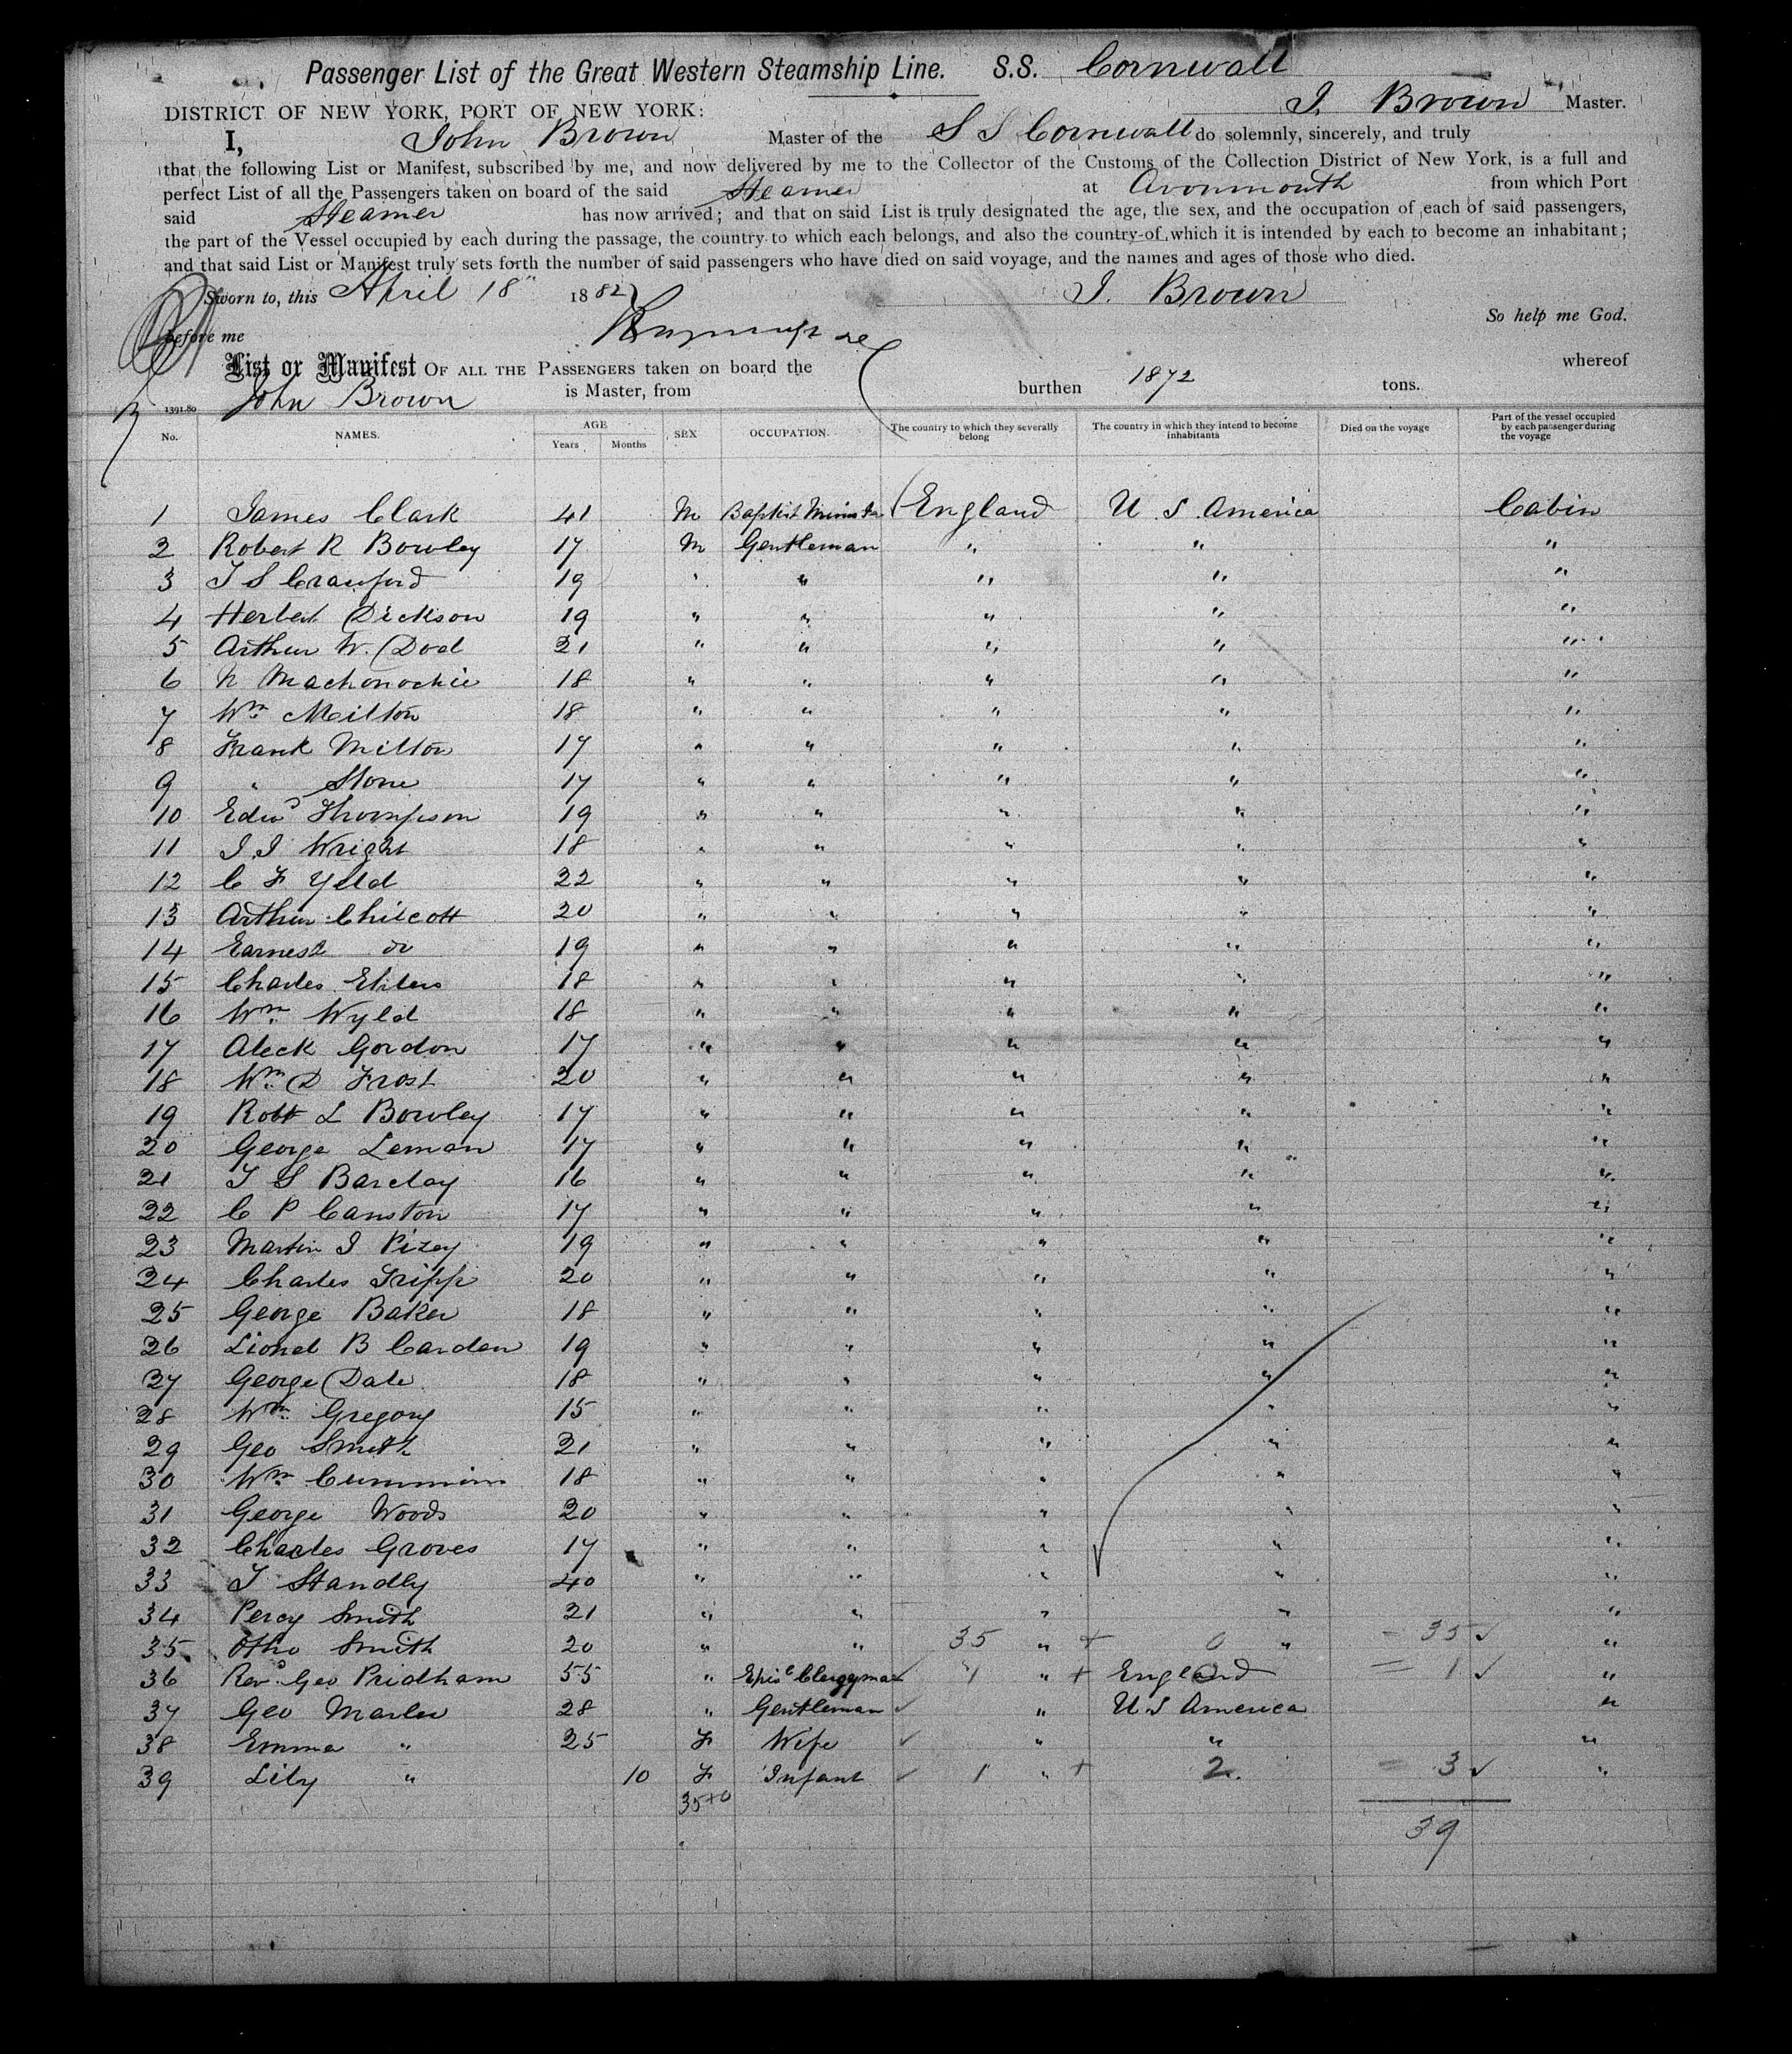 Passenger List of the Great Western Steamship Line. S.S. Cornwall
DISTRICT OF NEW YORK, PORT OF NEW YORK: J. Brown Master.
I, John Brown Master of the S S Cornwall do solemnly, sincerely, and truly
that the following List or Manifest, subscribed by me, and now delivered by me to the Collector of the Customs of the Collection District of New York, is a full and
perfect List of all the Passengers taken on board of the said Steamer at Avonmouth from which Port
said Steamer has now arrived; and that on said List is truly designated the age, the sex, and the occupation of each of said passengers,
the part of the Vessel occupied by each during the passage, the country to which each belongs, and also the country of which it is intended by each to become an inhabitant;
and that said List or Manifest truly sets forth the number of said passengers who have died on said voyage, and the names and ages of those who died.
Sworn to, this April 18" 1882 J. Brown
So help me God.
before me
List or Manifest OF ALL THE PASSENGERS taken on board the whereof
1391.80 John Brown is Master, from burthen 1872 tons.
No. NAMES. AGE Years Months SEX OCCUPATION. The country to which they severally belong The country in which they intend to become inhabitants Died on the voyage Part of the vessel occupied by each passenger during the voyage
1 James Clark 41 M Baptist Minister England U. S. America Cabin
2 Robert R Bowley 17 M Gentleman " " "
3 T S Crawford 19 " " " " "
4 Herbert Dickson 19 " " " " "
5 Arthur W. Dod 21 " " " " "
6 N Machonochie 18 " " " " "
7 Wm Milton 18 " " " " "
8 Frank Milton 17 " " " " "
9 " Stone 17 " " " " "
10 Edwd Thompson 19 " " " " "
11 J. J Wright 18 " " " " "
12 C F Yeld 22 " " " " "
13 Arthur Chilcott 20 " " " " "
14 Earnest do 19 " " " " "
15 Charles Ehlers 18 " " " " "
16 Wm Wyld 18 " " " " "
17 Aleck Gordon 17 " " " " "
18 Wm D Frost 20 " " " " "
19 Robt L Bowley 17 " " " " "
20 George Leman 17 " " " " "
21 T S Barclay 16 " " " " "
22 C P Canston 17 " " " " "
23 Martin J Pizey 19 " " " " "
24 Charles Tripp 20 " " " " "
25 George Baker 18 " " " " "
26 Lionel B Carden 19 " " " " "
27 George Dale 18 " " " " "
28 Wm Gregory 15 " " " " "
29 Geo Smith 21 " " " " "
30 Wm Cummins 18 " " " " "
31 George Woods 20 " " " " "
32 Charles Groves 17 " " " " "
33 T Standly 40 " " " " "
34 Percy Smith 21 " " " " "
35 Otho Smith 20 " " 35 " + 0 " = 35 ✓ "
36 Revd Geo Pridham 55 " Episc Clergyman ✓ 1 " + England 0 = 1 ✓ "
37 Geo Marler 28 " Gentleman ✓ " U S America "
38 Emma " 25 F Wife ✓ " " "
39 Lily " 10 F Infant ✓ 1 " + 2 = 3 ✓ "
35+0
39